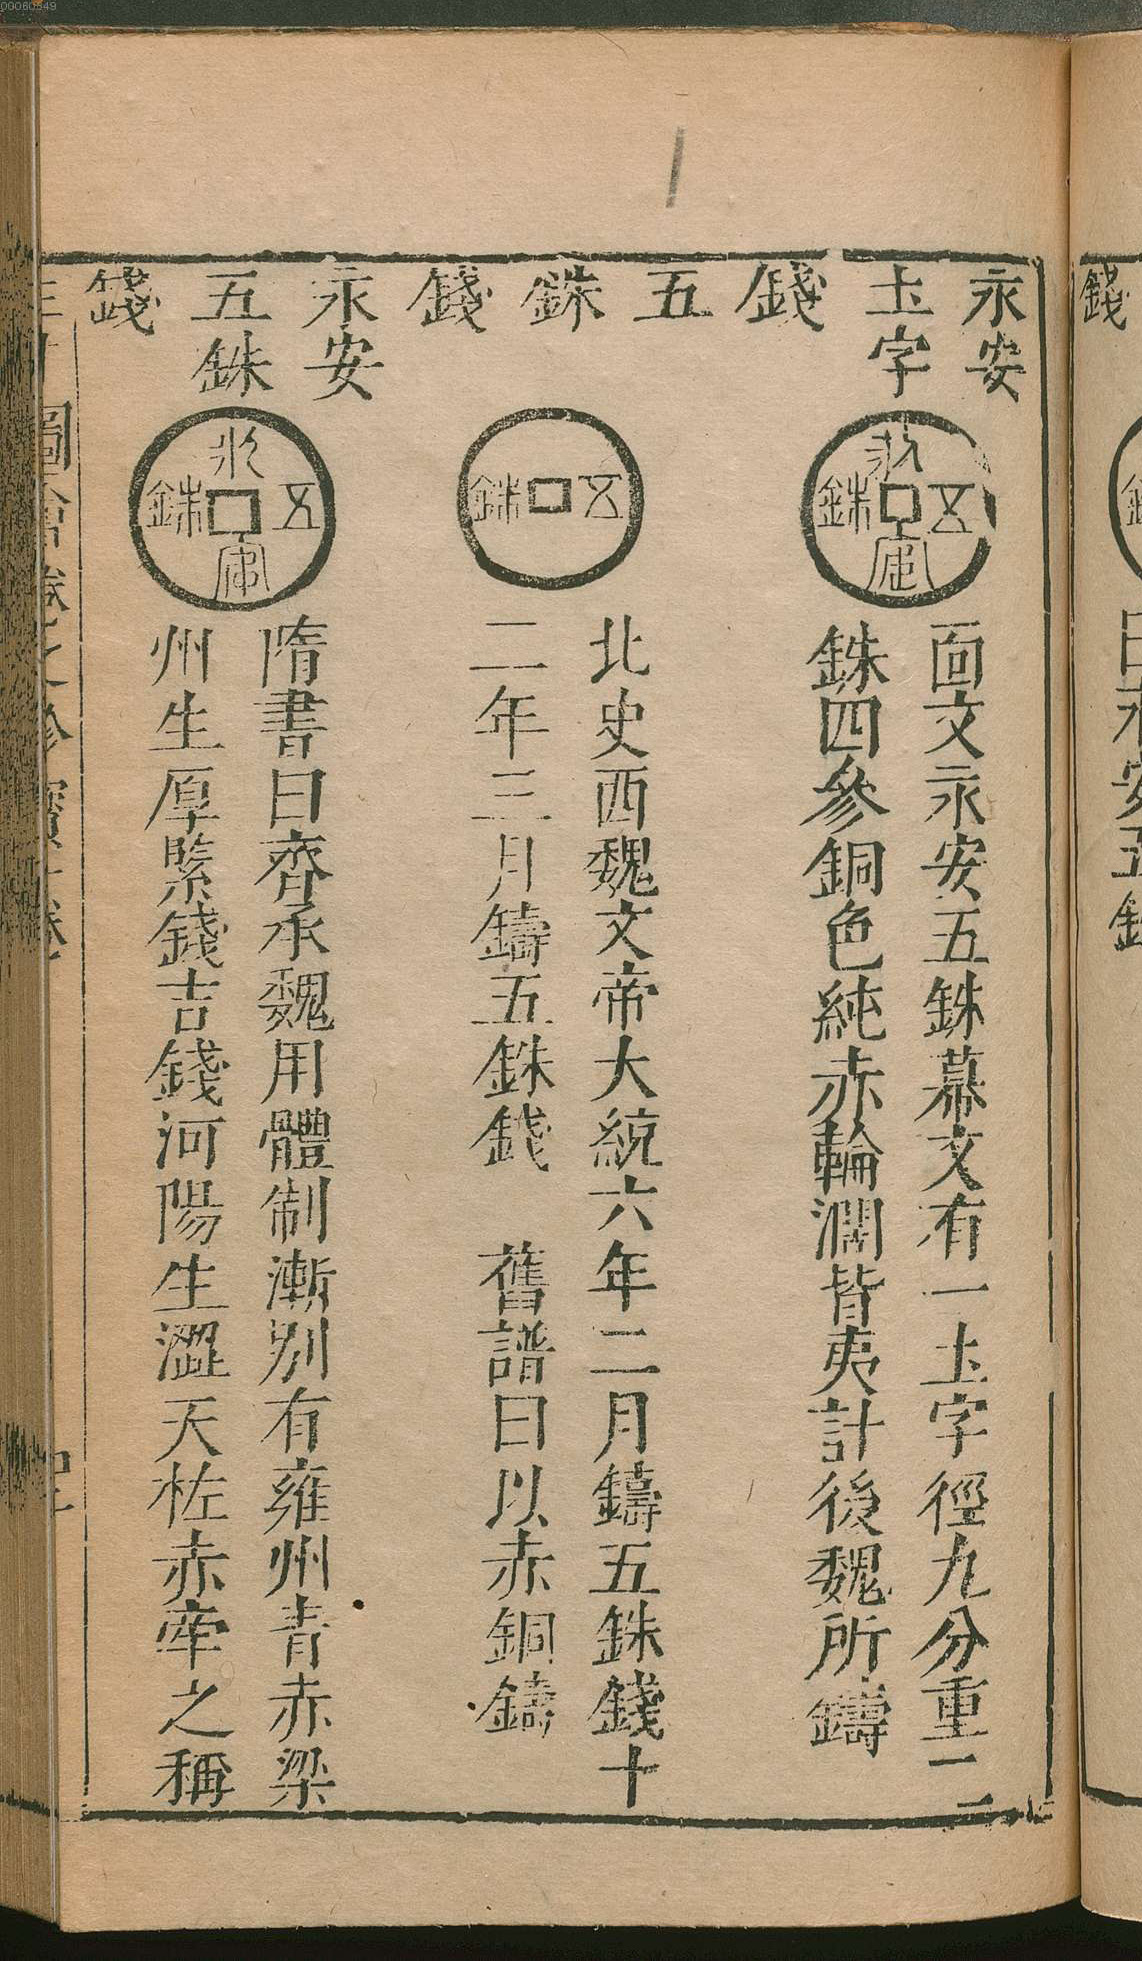 永安
土字
錢
面文永安五銖幕文有一土字徑九分重一二
銖四參銅色純赤輪濶皆夷計後魏所鑄
五
銖
錢
北史西魏文帝大統六年二月鑄五銖錢十
二年三月鑄五銖錢 舊譜曰以赤銅鑄
永安
五銖
錢
隋書曰齊承魏用體制漸别有雍州青赤梁
州生厚緊錢吉錢河陽生澀天柘赤牽之稱
永安五銖
五銖
永安五銖
錢
曰永安五銖
圖會卷之珍寶一卷
00060549